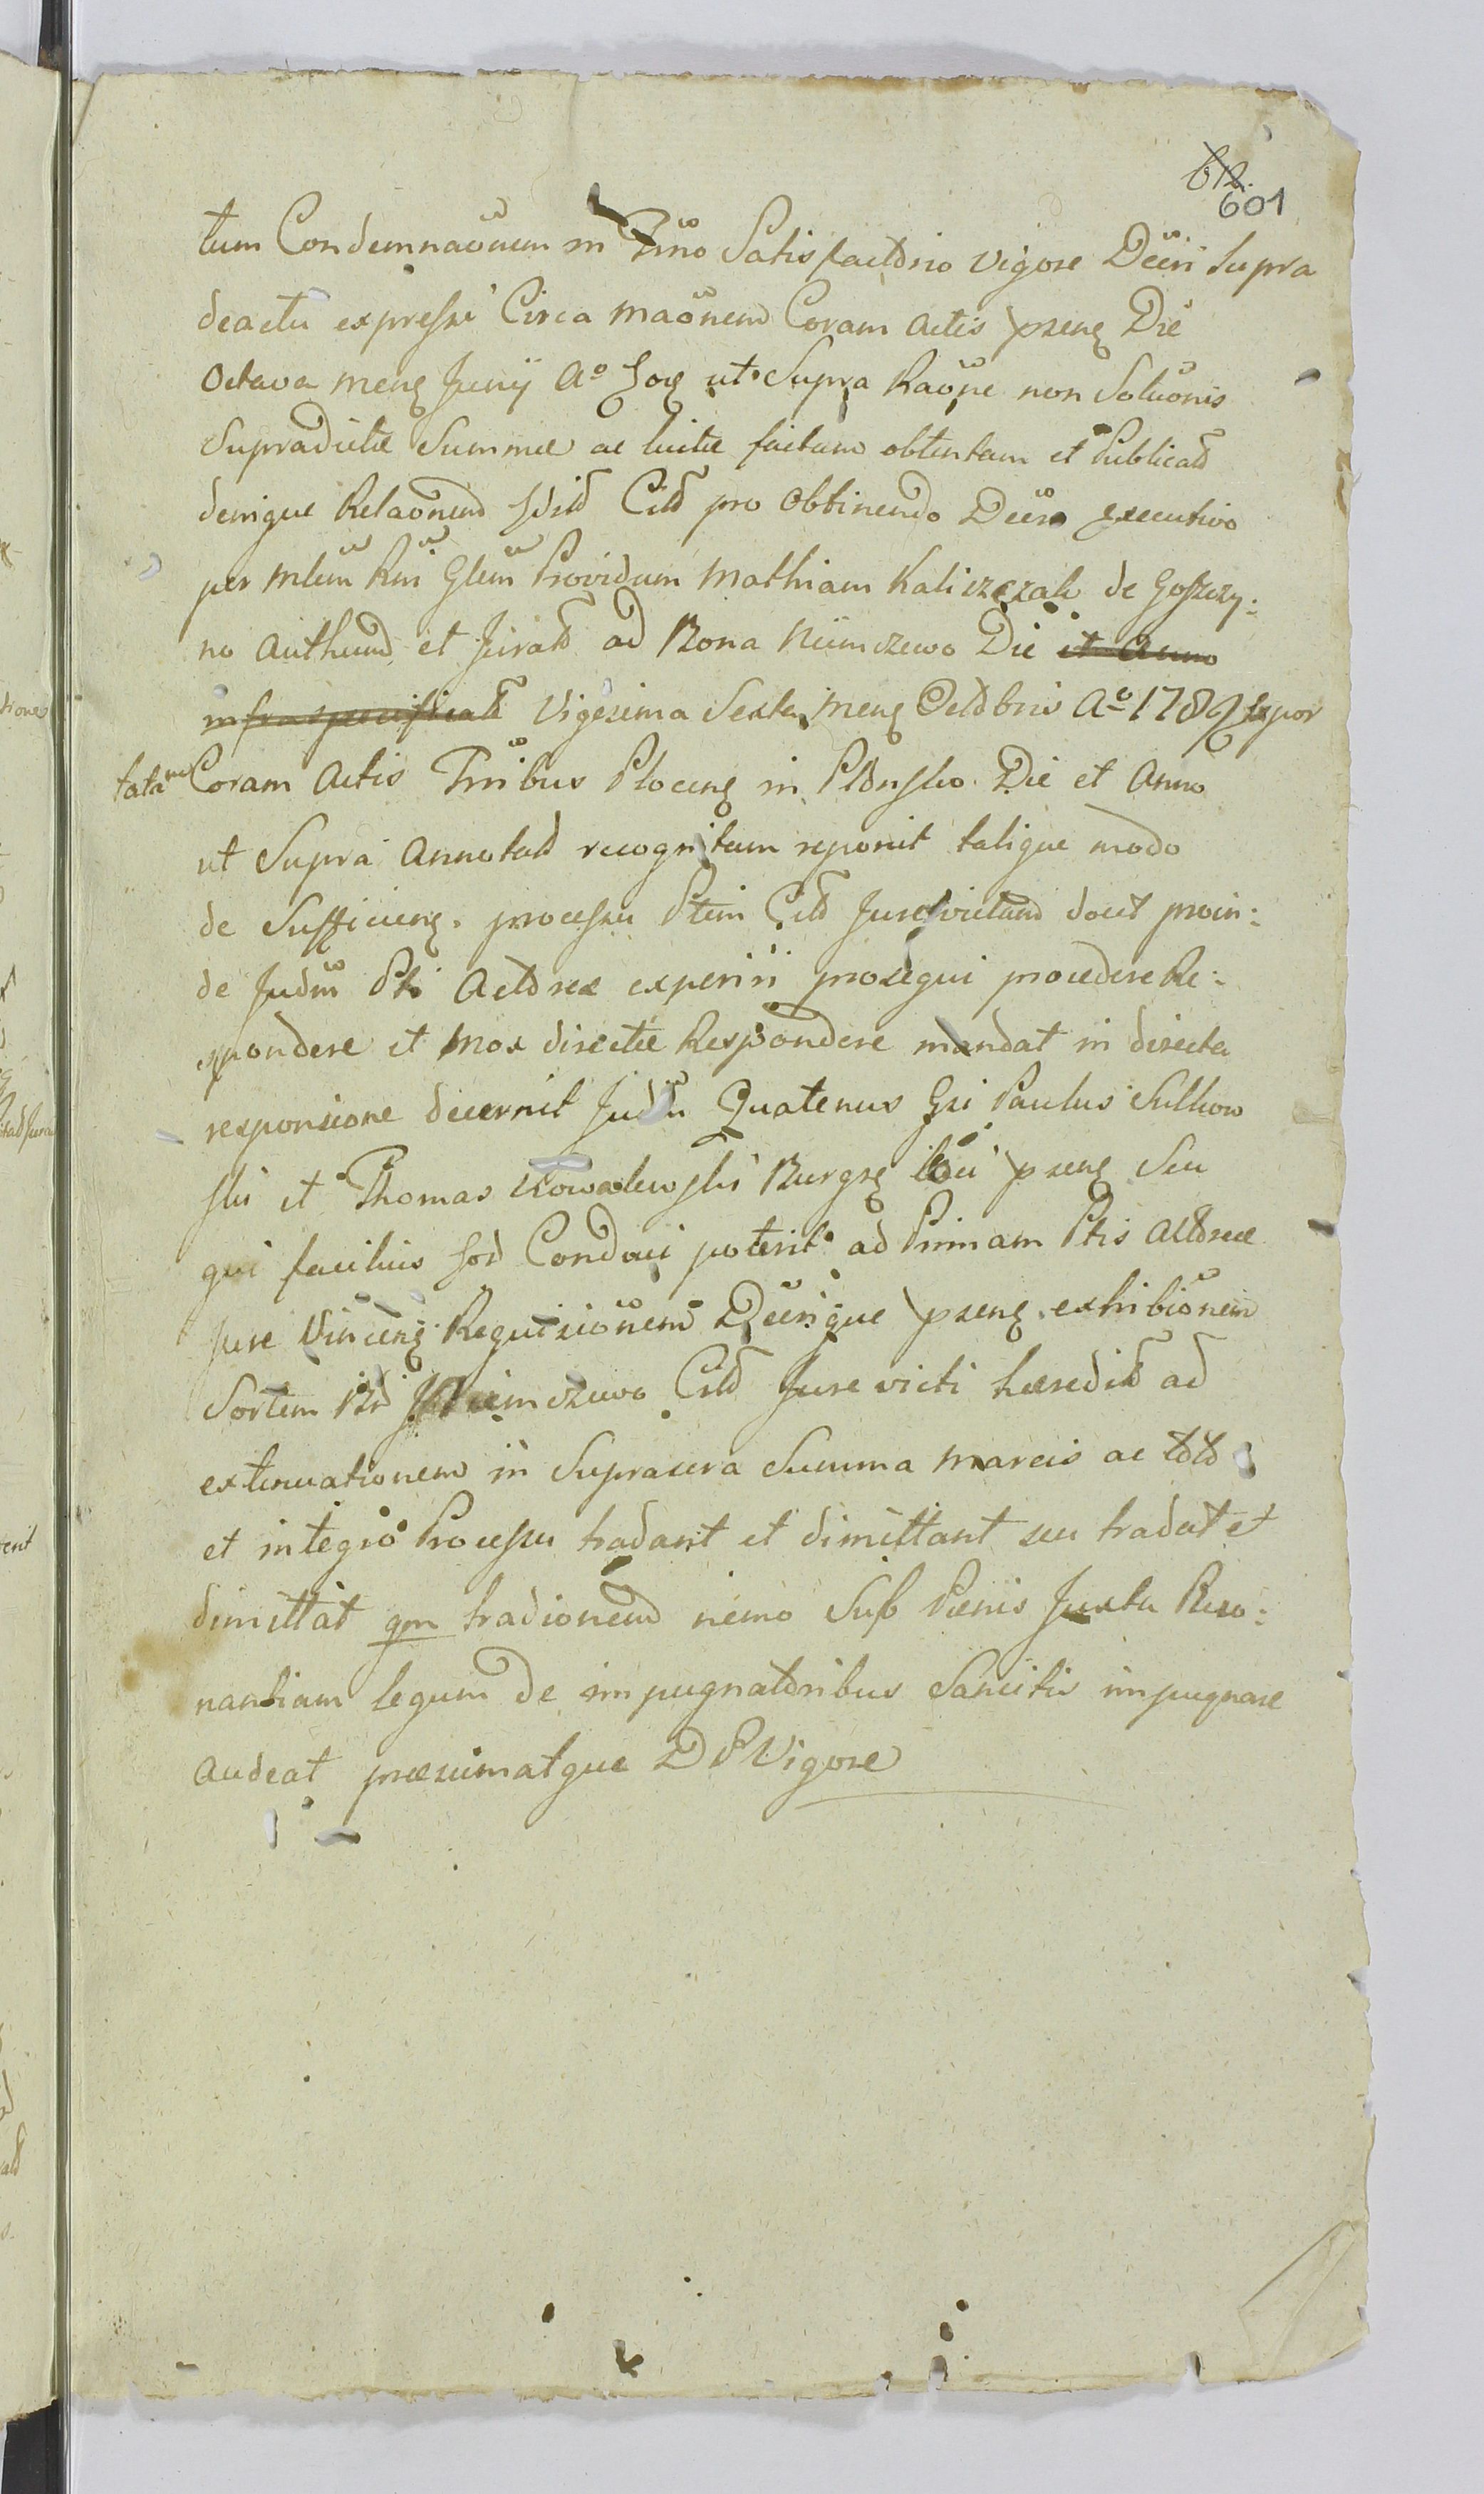 612.
601
tum Condemnaõnem in Trno Satisfactorio vigore Decri Supra
deactu expressi Circa maõnem Coram Actis pseng Die
Octava meng Junij Ao ut Supra Raõne non Soluõnis
Supradictæ Summæ ac luitæ factam obtentam et Publicatd
denique Relaõnem Citd pro Obtinendo Decro executivo
per Mlem Rni Glem Providum Mathiam Kaliszczak de Goszczy:
no Authum et Juratd ad Bona Niimczewo Die et Anno
infraspecificatd Vigesima Sexta meng Octobris Ao 1789 expor
tatam Coram Actis Trribus Plocens in Płońsko Die et Anno
ut Supra Annotatd recognitam reponit talique modo
de Sufficieng. processu Ptem Citd Jurevictam docet proin:
de Judm Pti Actoreæ experiri prosequi procedere Re:
spondere et mox directæ Respondere mandat in directa
responsione decernit Judm Quatenus Gsi Paulus Sulkow
ski et Thomas Kowalewski Burgs pseng Seu
qui facilius Conduci poterit ad Primam Ptis Actoreæ
Jure Vinceng Requisicionem Decrique pseng exhibiõnem
Sortem Niemczewo Citd Jure victi hæredit ad
extenuationem in Suprascra Summa Marcis ac totd
et integro Processu tradant et dimittant seu tradat et
dimittat qm tradionem nemo Sub Pænis Juxta Reso:
nantiam legum de impugnatoribus Sancitis impugnare
audeat præsumatque D P Vigore